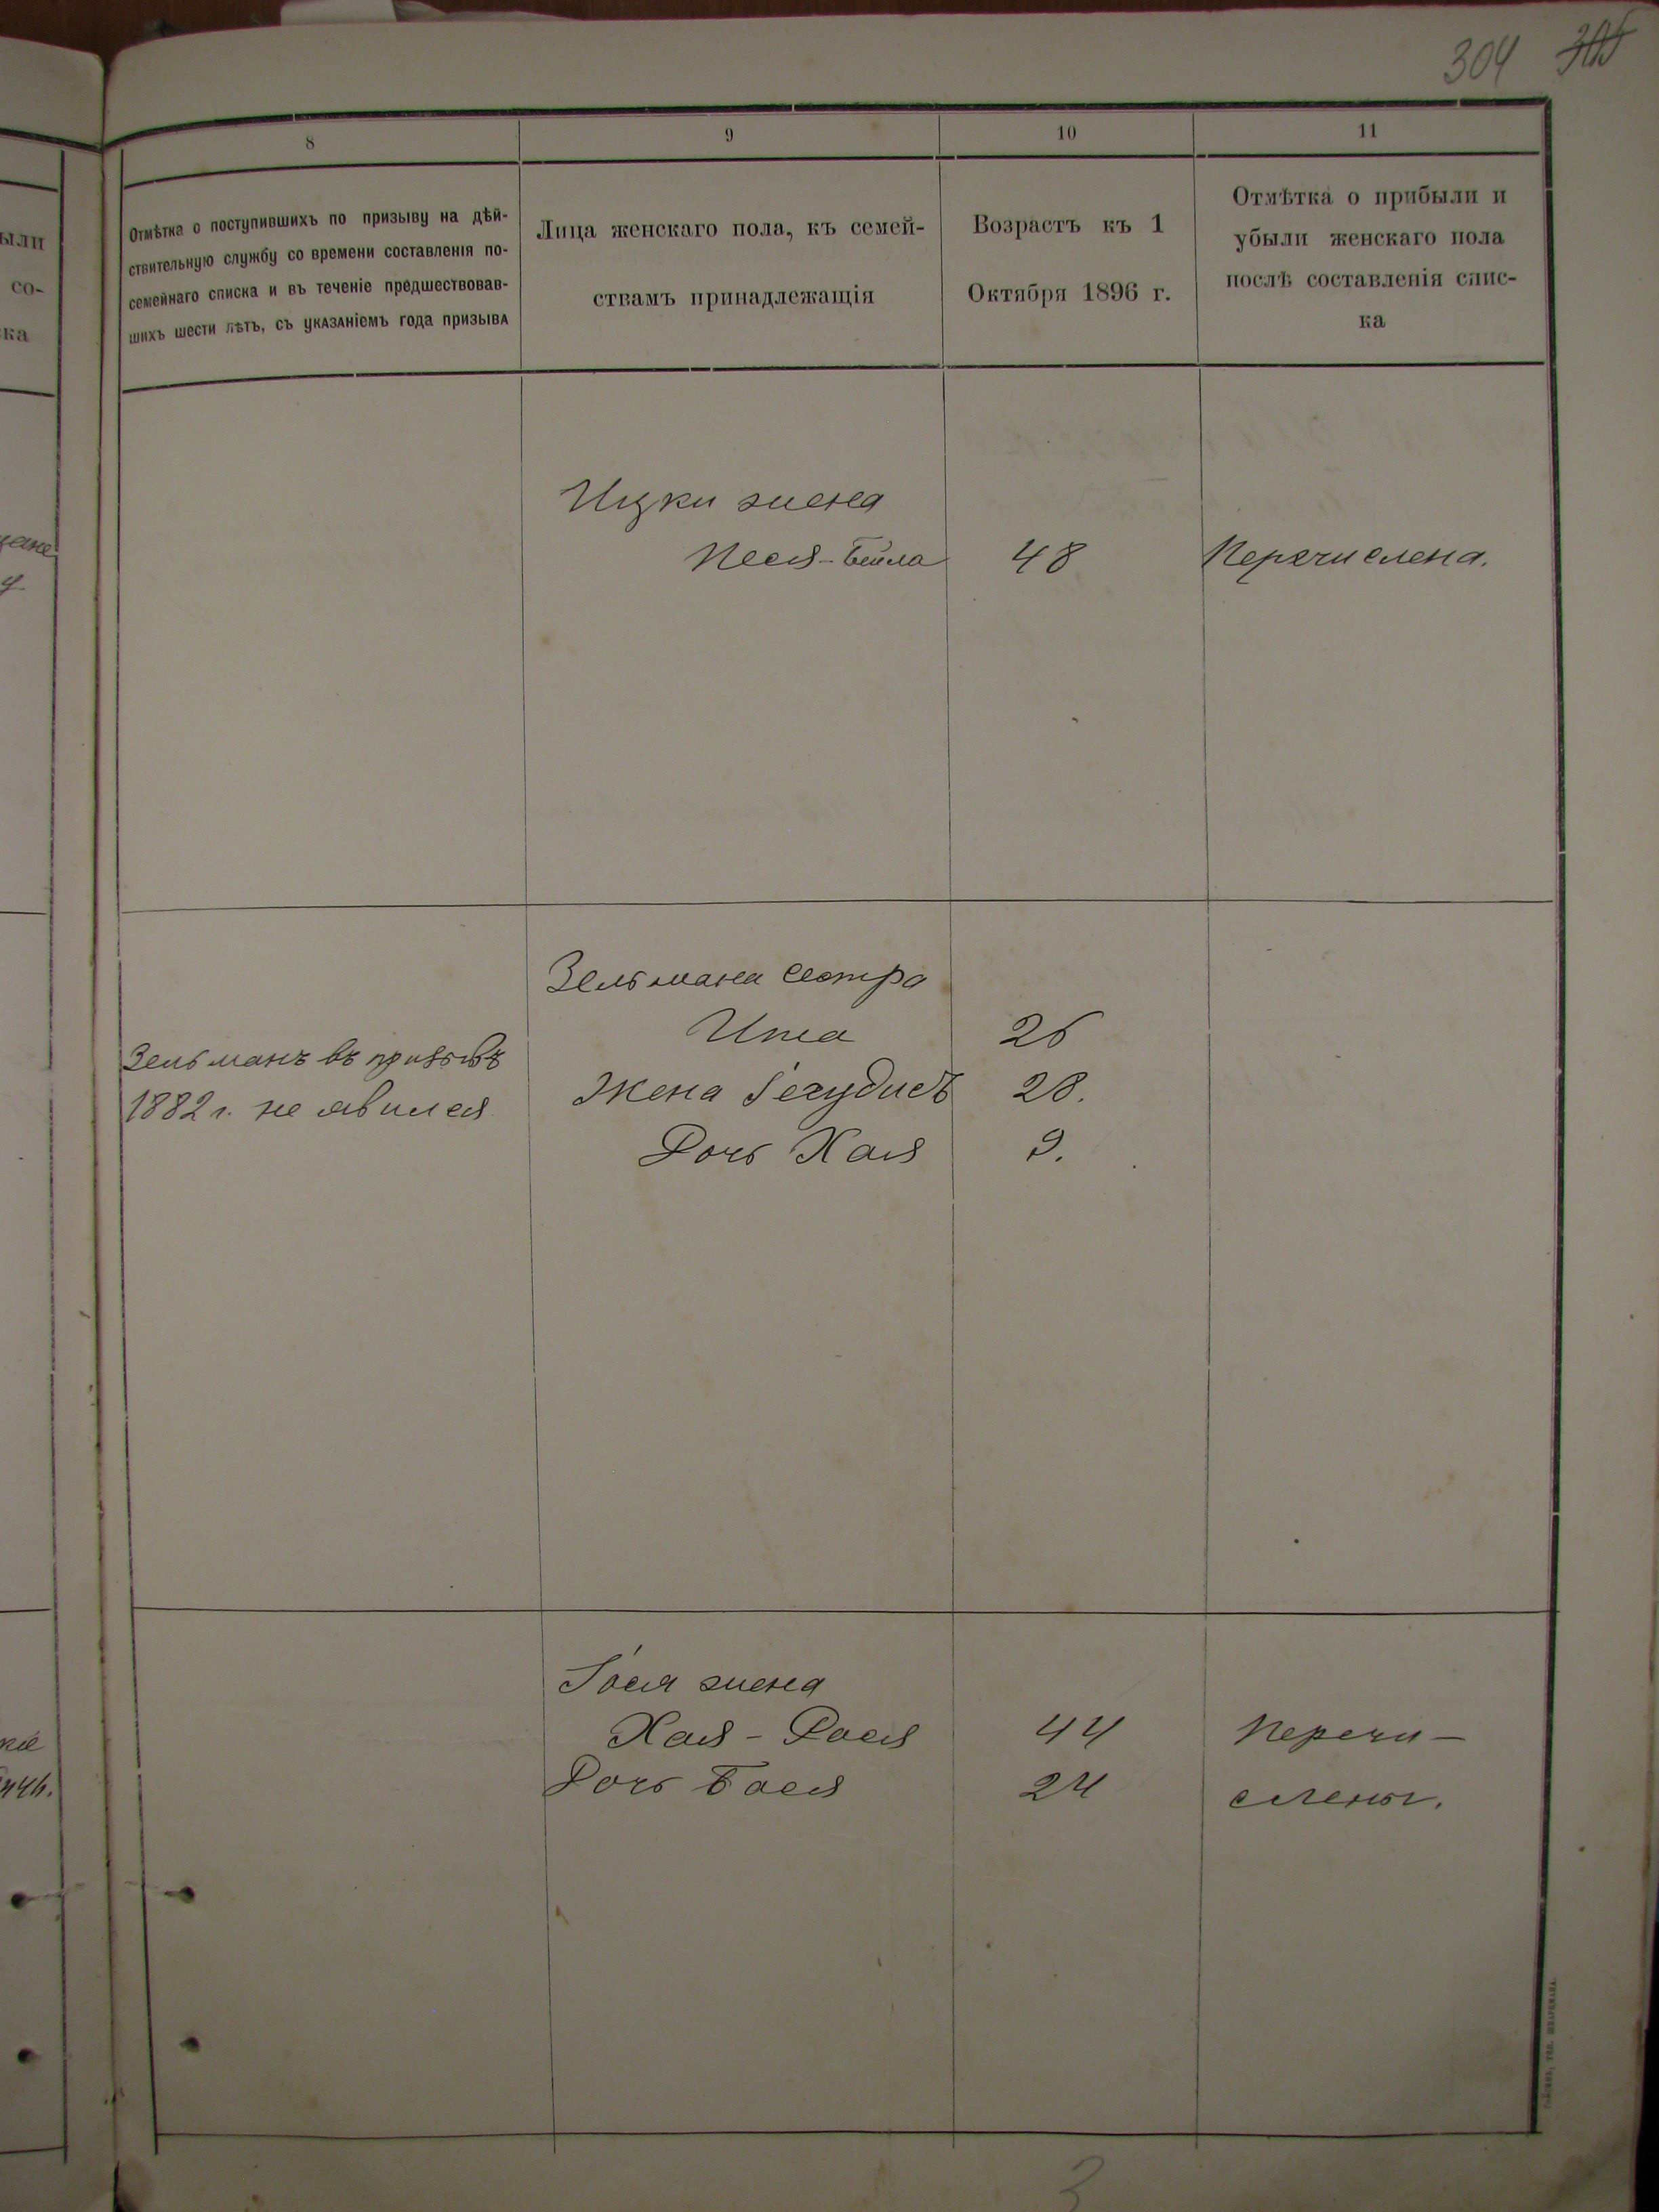 304 305
ыли
со-
ка
8 9 10 11
Отмѣтка о поступившихъ по призыву на дѣй-
ствительную службу со времени составленія по-
семейнаго списка и въ теченіе предшествовав-
шихъ шести лѣтъ, съ указаніемъ года призыва
Лица женскаго пола, къ семей-
ствамъ принадлежащія
Возрастъ къ 1
Октября 1896 г.
Отмѣтка о прибыли и
убыли женскаго пола
послѣ составленія спис-
ка
Ицки жена
Песя-Бейла 48 Перечислена.
Зельманъ въ призывъ
1882 г. не явился
Зельмана сестра
Ита 26
Жена Іегудисъ 28.
Дочь Хая 9.
Іося жена
Хая-Рося 44 Перечи-
Дочь Бася 24 слены.
3